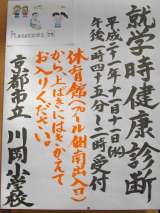 就学時健康診断
平成二十一年十一月十日(火)
午後一時四十五分〜二時受付
体育館(プール側南出入口)
から上ばきにはきかえて
お入りください。
京都市立 川岡小学校